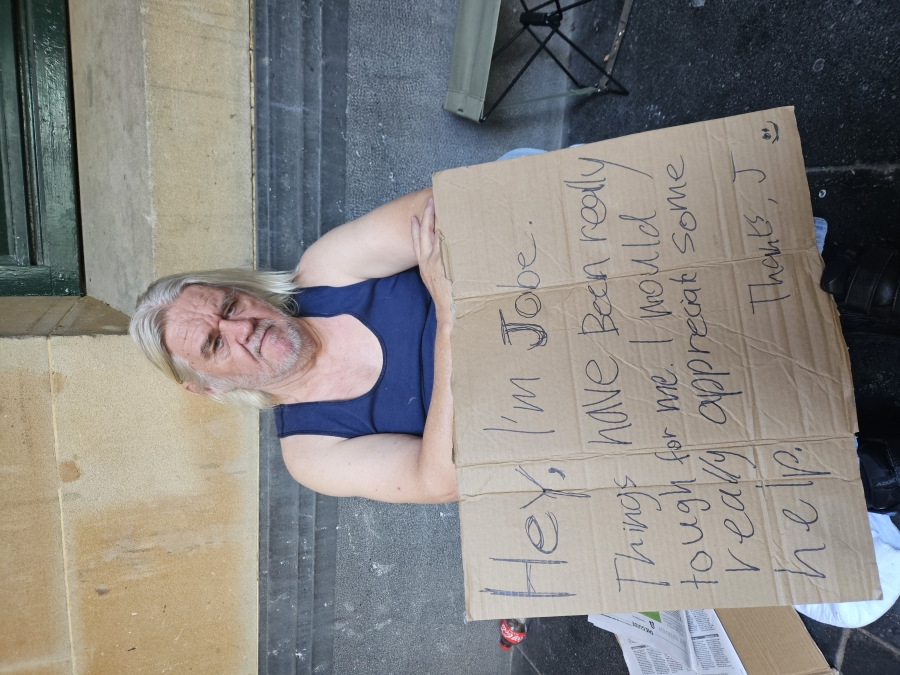 Hey, I'm Jobe.
Things have Been really
tough for me. I would
really appreciate some
help.
Thanks, J
Coca-Cola